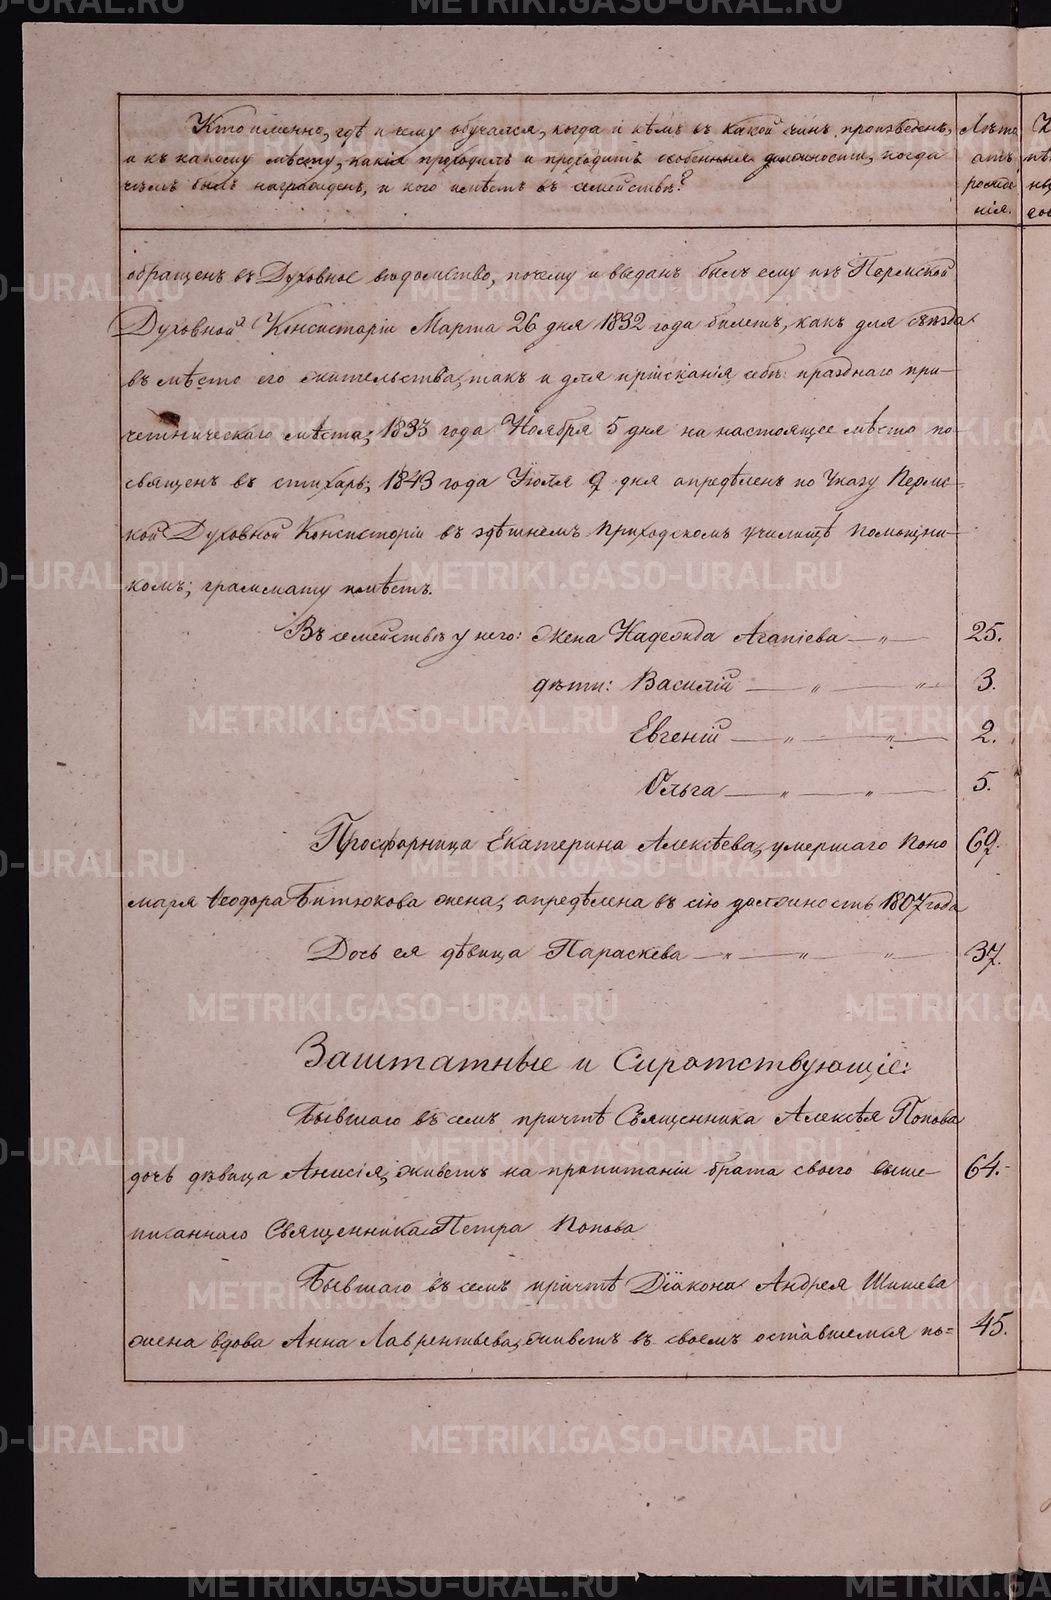 Кто именно, гдѣ и чему обучался, когда и кѣмъ въ какой чинъ произведенъ,
и къ какому мѣсту, какія проходилъ и проходитъ особенныя должности, когда
чѣмъ былъ награжденъ, и кого имѣетъ въ семействѣ?
Лѣта
отъ
рожде
нія.
обращенъ въ Духовное вѣдомство, почему и выданъ былъ ему изъ Пермской
Духовной Консисторіи Марта 26 дня 1832 года билетъ, какъ для съѣзда
въ мѣсто его жительства, такъ и для пріисканія себѣ празднаго при-
четническаго мѣста; 1833 года Ноября 5 дня на настоящее мѣсто по-
священъ въ стихарь; 1843 года Іюля 9 дня опредѣленъ по Указу Пермс-
кой Духовной Консисторіи въ здѣшнемъ приходскомъ училищѣ помощни-
комъ; граммату имѣетъ.
Въ семействѣ у него: жена Надежда Агапіева — „ — 25.
дѣти: Василій — „ — „ — 3.
Евгеній — „ — „ — 2.
Ольга — „ — „ — 5.
Просфорница Екатерина Алексѣева, умершаго Поно 69.
маря Ѳеодора Битюкова жена; опредѣлена въ сію должность 1807 года
Дочь ея дѣвица Параскева — „ — „ — „ — 37.
Заштатные и Сиротствующіе:
Бывшаго въ семъ причтѣ Священника Алексѣя Попова
дочь дѣвица Анисія, живетъ на пропитаніи брата своего выше- 64.
писаннаго Священника Петра Попова
Бывшаго въ семъ причтѣ Діакона Андрея Шишева
жена вдова Анна Лаврентьева, живетъ въ своемъ оставшемся по= 45.
METRIKI.GASO-URAL.RU